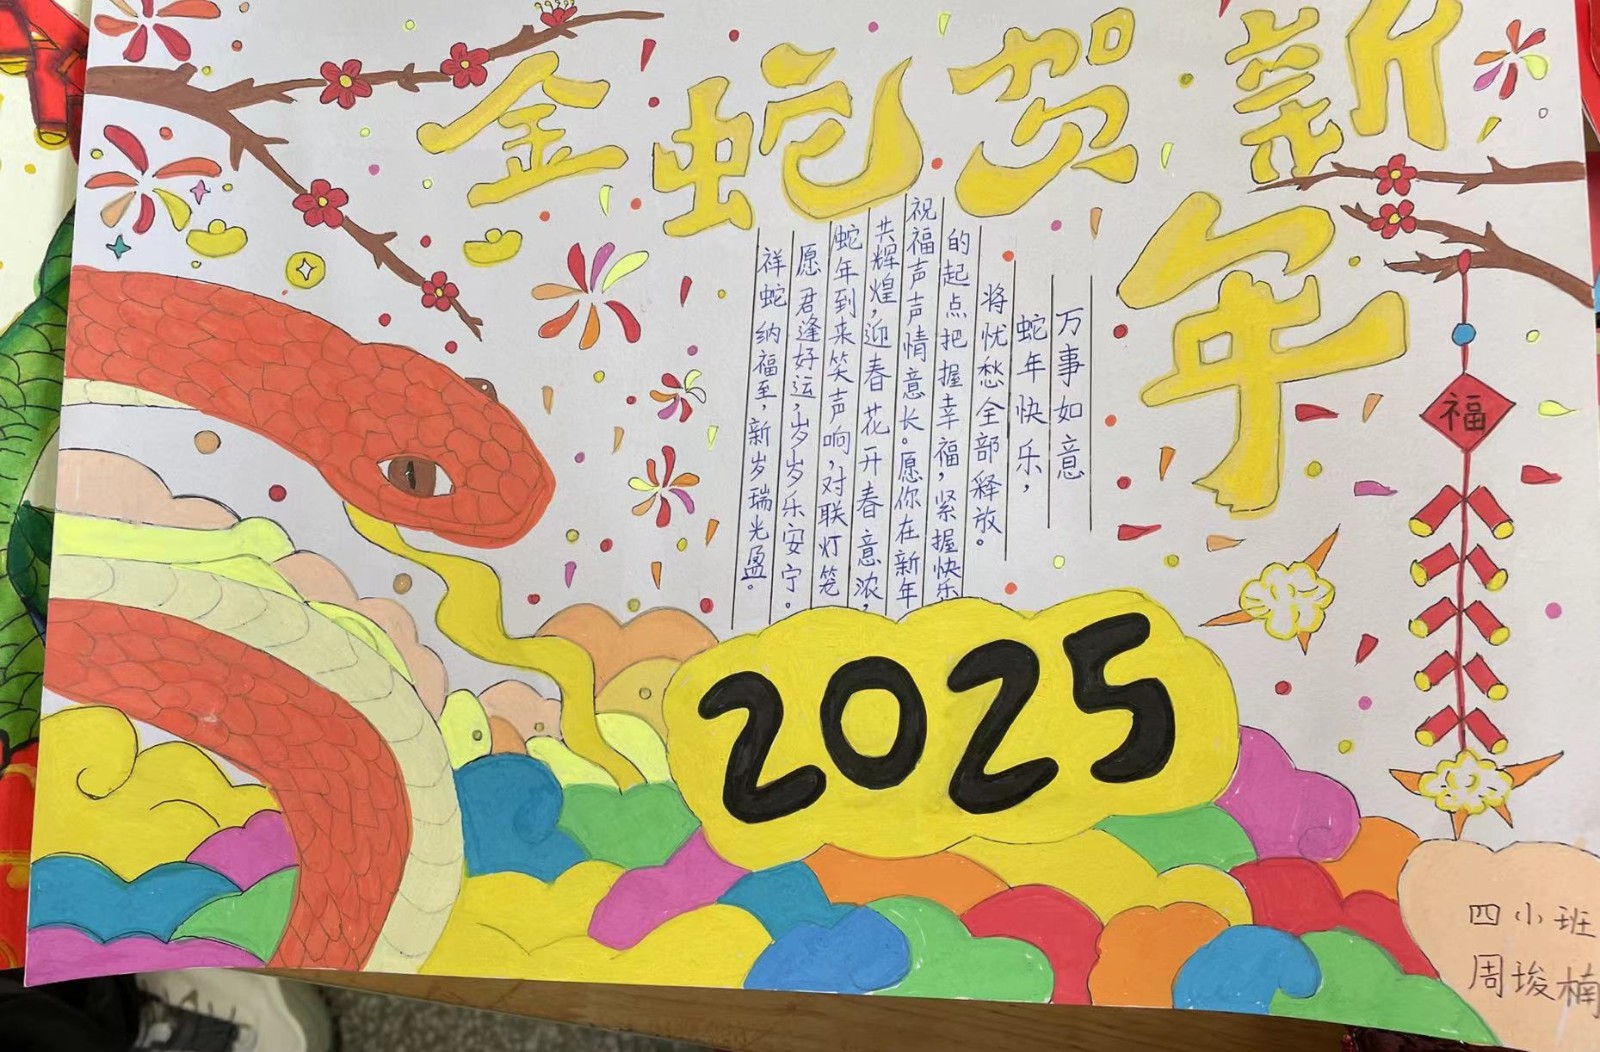 金蛇贺新年
祥蛇纳福至,新岁瑞光盈。
愿君逢好运,岁岁乐安宁。
蛇年到来笑声响,对联灯笼
共辉煌,迎春花开春意浓,
祝福声声情意长。愿你在新年
的起点把握幸福,紧握快乐
将忧愁全部释放。
蛇年快乐,
万事如意
福
2025
四小班
周埈楠